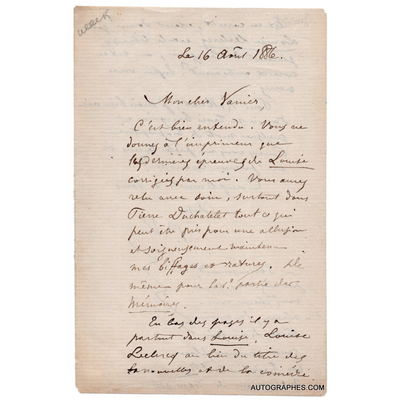 Le 16 Août 1886.
Mon cher Vanier
C'est bien entendu. Vous ne
donnez à l'imprimeur que
les dernières épreuves de Louise
corrigées par moi. Vous aurez
relu avec soin, surtout dans
Pierre Duchatelet tout ce qui
peut être pris pour une allusion
et soigneusement maintenu
mes biffages et ratures. De
même pour la partie des
Mémoires.
En bas des pages il y a
partout dans Louise, Louise
Leclercq au lieu du titre des
nouvelles et de la comédie
AUTOGRAPHES.COM